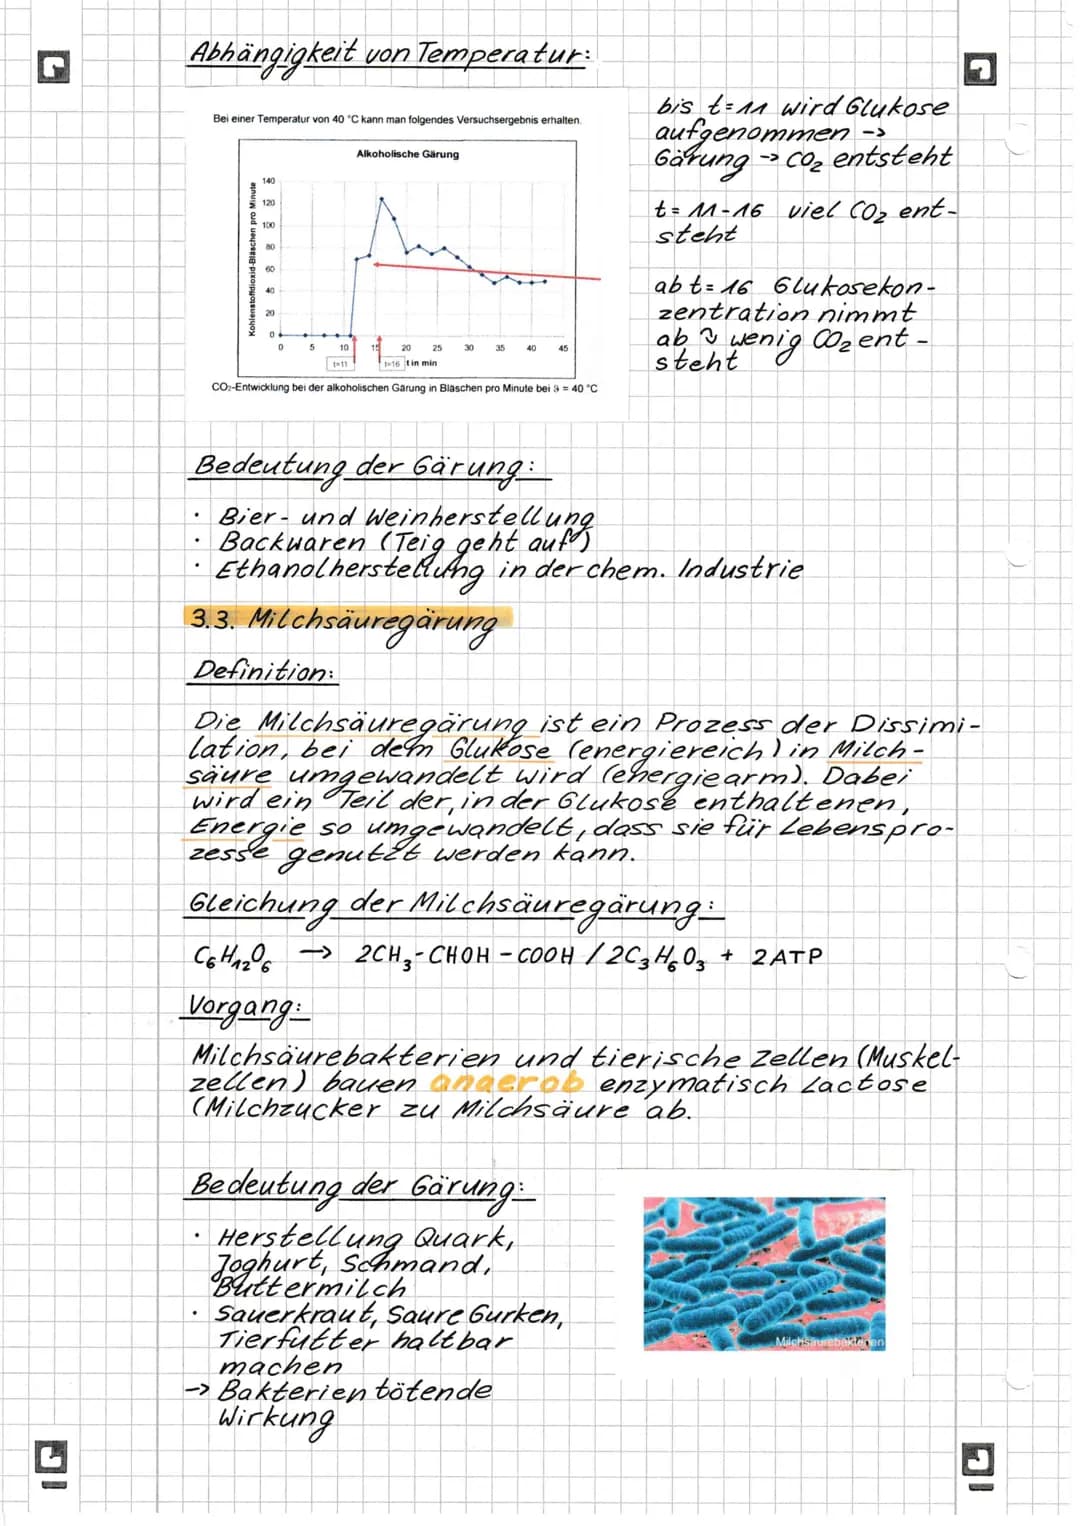 Abhängigkeit von Temperatur:
Bei einer Temperatur von 40 °C kann man folgendes Versuchsergebnis erhalten.
Alkoholische Gärung
Kohlenstoffdioxid-Bläschen pro Minute
140
120
100
80
60
40
20
0
0 5 10 15 20 25 30 35 40 45
t=11 t=16 t in min
CO₂-Entwicklung bei der alkoholischen Gärung in Bläschen pro Minute bei ϑ = 40 °C
bis t=11 wird Glukose
aufgenommen ->
Gärung -> CO₂ entsteht
t= 11-16 viel CO₂ ent-
steht
ab t= 16 Glukosekon-
zentration nimmt
ab ↷ wenig CO₂ ent-
steht
Bedeutung der Gärung:
· Bier- und Weinherstellung
· Backwaren (Teig geht auf)
· Ethanolherstellung in der chem. Industrie
3.3. Milchsäuregärung
Definition:
Die Milchsäuregärung ist ein Prozess der Dissimi-
lation, bei dem Glukose (energiereich) in Milch-
säure umgewandelt wird (energiearm). Dabei
wird ein Teil der, in der Glukose enthaltenen,
Energie so umgewandelt, dass sie für Lebenspro-
zesse genutzt werden kann.
Gleichung der Milchsäuregärung:
C₆H₁₂O₆ → 2CH₃-CHOH-COOH / 2C₃H₆O₃ + 2ATP
Vorgang:
Milchsäurebakterien und tierische Zellen (Muskel-
zellen) bauen anaerob enzymatisch Lactose
(Milchzucker zu Milchsäure ab.
Bedeutung der Gärung:
· Herstellung Quark,
Joghurt, Schmand,
Buttermilch
· Sauerkraut, Saure Gurken,
Tierfutter haltbar
machen
-> Bakterien tötende
Wirkung
Milchsäurebakterien